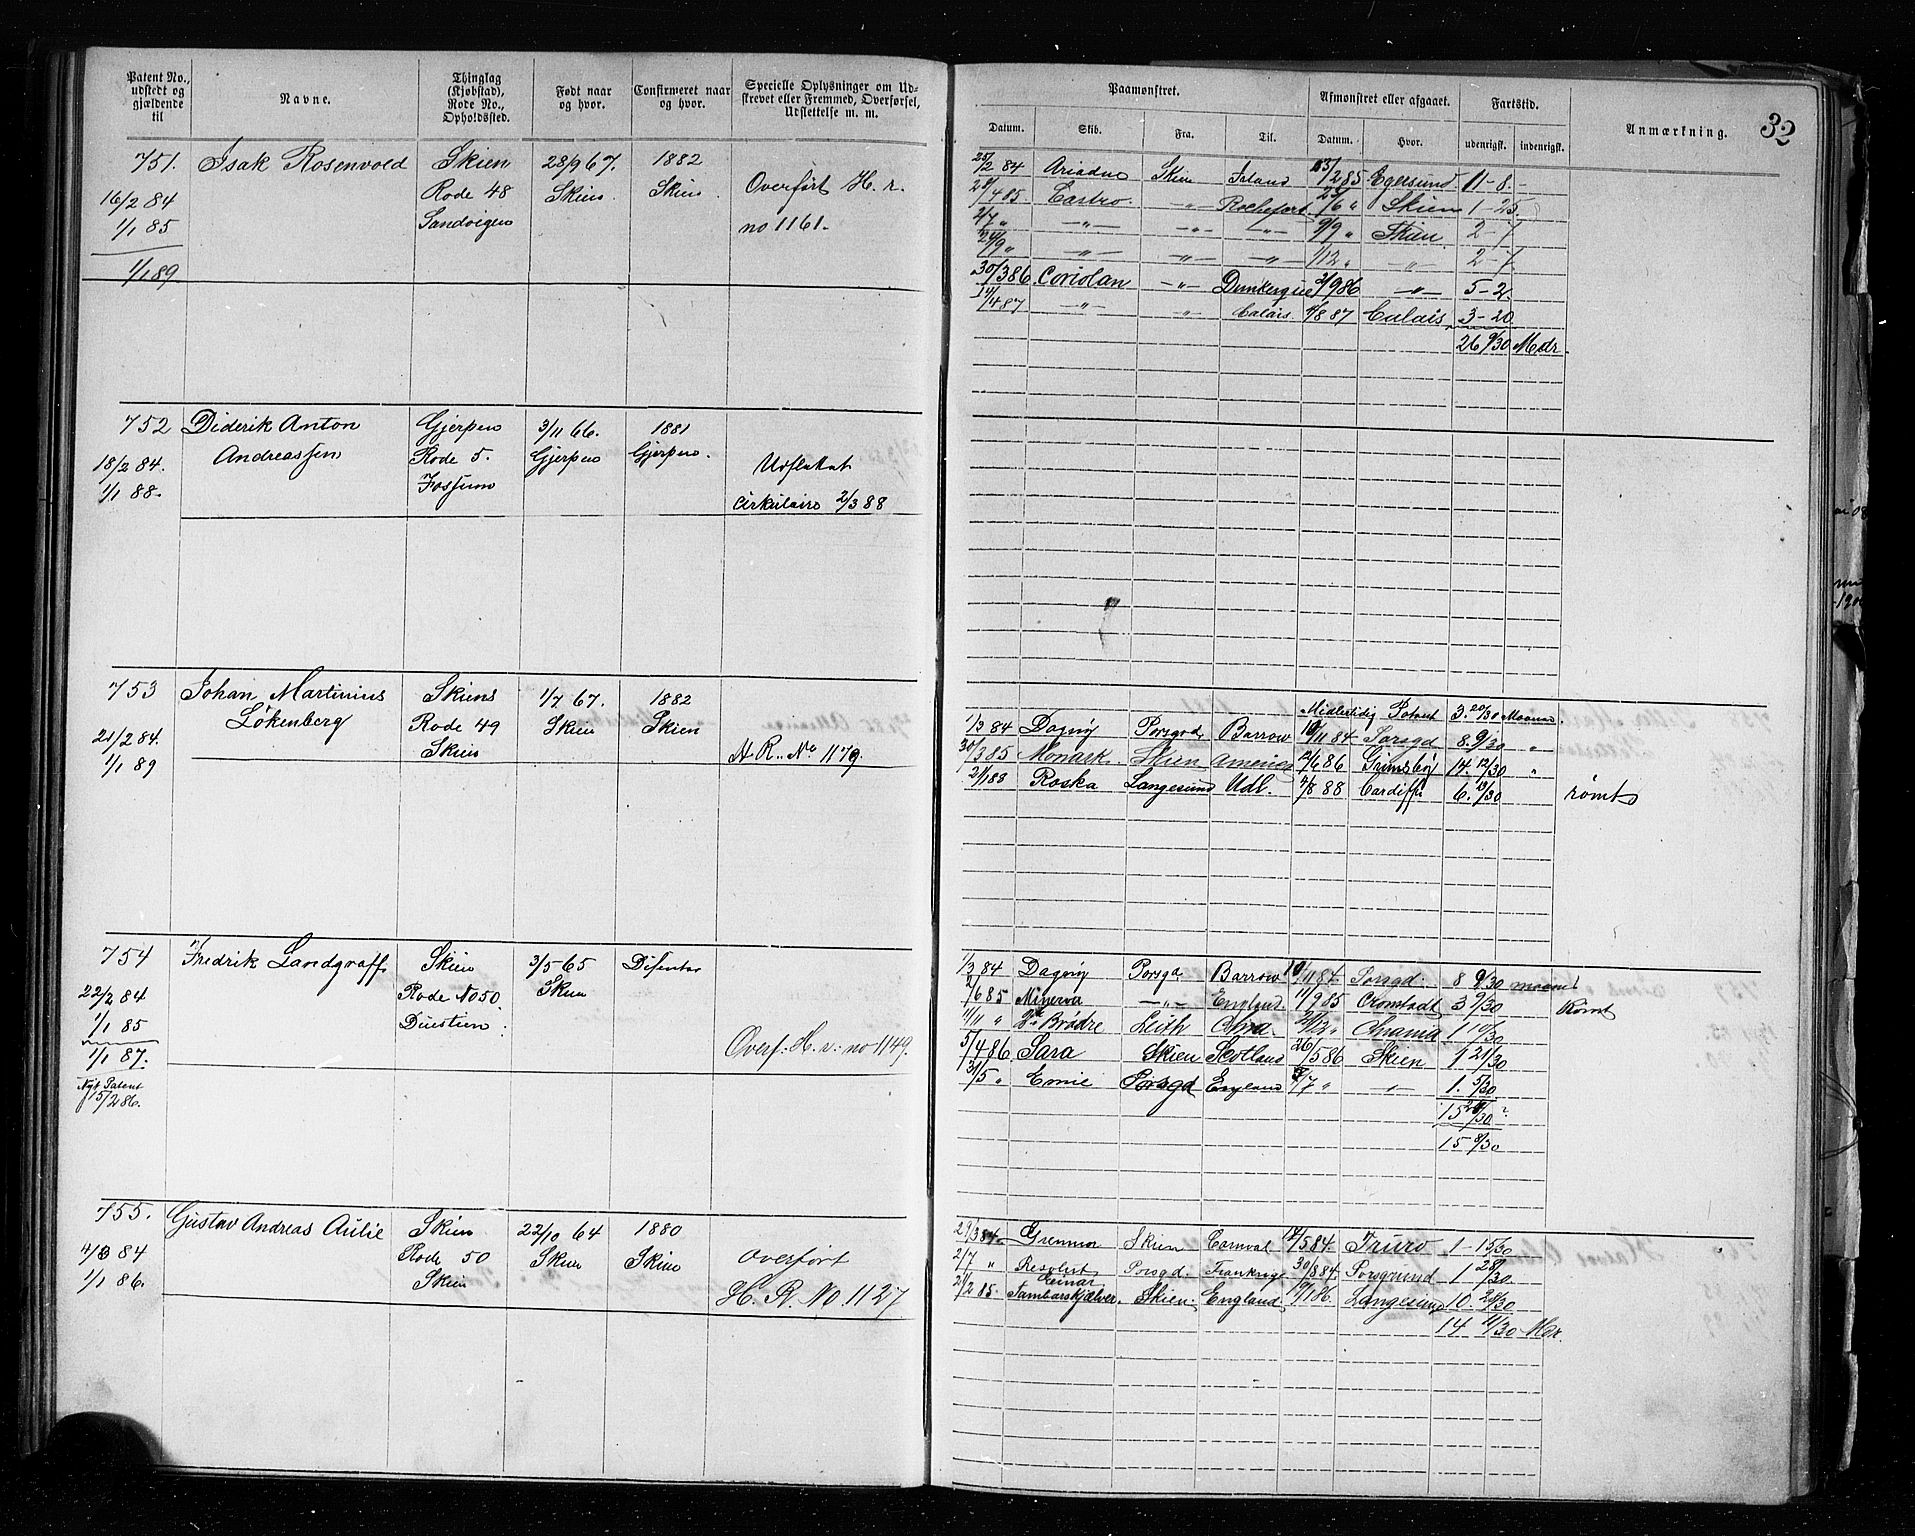 Patent No., udstedt og gjældende til
Navne.
Thinglag (Kjøbstad), Rode No., Opholdssted.
Født naar og hvor.
Confirmeret naar og hvor.
Specielle Oplysninger om Udskrevet eller Fremmed, Overførsel, Udslettelse m. m.
Paamønstret.
Afmønstret eller afgaaet.
Fartstid.
Anmærkning.
32
Datum.
Skib.
Fra.
Til.
Datum.
Hvor.
udenrigsk.
indenrigsk.
751. Isak Rosenvold Skien 28/9 67. 1882
16/2 84 Rode 48 Skien Skien Overført H. r.
1/1 85 Sandvigen no 1161.
1/1 89
25/2 84 Ariadne Skien Irland 85 Egersund 11-8. -
28/4 85 Castro. -"- Rochefort 25/6 " Skien 1-25.
2/7 " -"- -"- -"- 9/9 " Skien 2-7
24/9 " -"- -"- -"- 1/12 " -"- 2-7.
30/3 86 Coriolan -"- Dunkerque 2/9 86 -"- 5-2
14/4 87 -"- -"- Calais 4/8 87 Calais 3-20
26 9/30 Mdr.
752 Diderik Anton Gjerpen 3/11 66. 1881
Andreassen Rode 5. Gjerpen Gjerpen.
18/2 84. Fossum
1/1 88. Cirkulaire 2/3 88
753 Johan Martinius Skiens 1/7 67. 1882
Lökenberg Rode 49 Skien Skien
21/2 84. Skien H. R. No 1179.
1/1 89
Midlertidig Patent 3. 20/30 Maaned.
1/3 84 Dagny Porsgd Barrow 10/11 84 Porsgd 8. 9/30 "
30/3 85 Monark Skien America 12/6 86 Grimsby 14. 12/30 "
21/1 88 Roska Langesund Udl. 4/8 88 Cardiff 6. 13/30 rømt
754 Fredrik Landgraff Skien 3/5 65 Disenter
22/2 84 Rode No 50 Skien
1/1 85
1/1 87. Overf: H. r: no 1149.
Nyt Patent
15/2 86.
1/3 84 Dagny Porsgd. Barrow 10/11 84 Porsgd. 8 9/30 maaned
2/6 85 Minerva -"- England 11/9 85 Cronstadt 3 9/30 Rømt
11/11 " Brödre Leith 1 10/30
5/4 86 Sara Skien Skotland 26/5 86 Skien 1 21/30
31/5 " Emie Porsgd England /7 " -"- 1. 5/30
15 /30
15 8/30
755. Gustav Andreas Aulie Skien 22/10 64 1880
4/3 84 Rode 50 Skien Skien Overført
1/1 86. Skien H. R. No 1127
29/3 84 Gremmor Skien Cornval 14/5 84. Truro 1-15/30
2/7 " Resolut Porsgd. Frankrige 30/8 84. Porsgrund 1 28/30
Einar
21/2 85. Tambarskjelver. Skien England 19/1 86. Langesund 10. 28/30
14 11/30 Mdr.